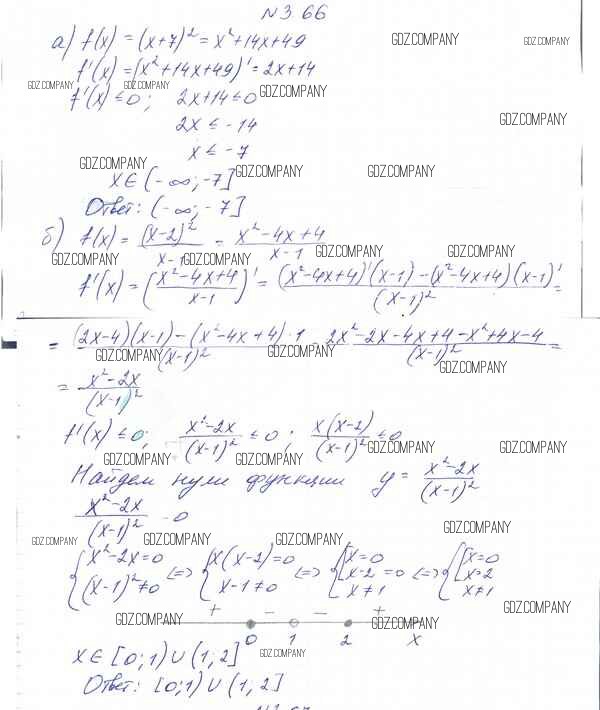 №3 66
а) f(x) = (x+7)² = x²+14x+49
GDZ.COMPANY GDZ.COMPANY
f'(x) = (x²+14x+49)' = 2x+14
GDZ.COMPANY GDZ.COMPANY GDZ.COMPANY
f'(x) ≤ 0; 2x+14 ≤ 0
2x ≤ -14
GDZ.COMPANY
x ≤ -7
GDZ.COMPANY GDZ.COMPANY GDZ.COMPANY
x ∈ (-∞; -7]
Ответ: (-∞; -7]
б) f(x) = (x-2)²/x-1 = x²-4x+4/x-1
GDZ.COMPANY GDZ.COMPANY GDZ.COMPANY GDZ.COMPANY
f'(x) = (x²-4x+4/x-1)' = (x²-4x+4)'(x-1)-(x²-4x+4)(x-1)'/(x-1)² =
= (2x-4)(x-1)-(x²-4x+4)·1/(x-1)² = 2x²-2x-4x+4-x²+4x-4/(x-1)² =
GDZ.COMPANY GDZ.COMPANY GDZ.COMPANY
= x²-2x/(x-1)²
f'(x) ≤ 0; x²-2x/(x-1)² ≤ 0; x(x-2)/(x-1)² ≤ 0
GDZ.COMPANY GDZ.COMPANY GDZ.COMPANY GDZ.COMPANY
Найдем нули функции y = x²-2x/(x-1)²
x²-2x/(x-1)² = 0
GDZ.COMPANY
GDZ.COMPANY GDZ.COMPANY GDZ.COMPANY
{x²-2x=0 <=> {x(x-2)=0 <=> {[x=0 <=> {[x=0
(x-1)²≠0 x-1≠0 x-2=0 x=2
x≠1 x≠1
GDZ.COMPANY
+ - - +
GDZ.COMPANY GDZ.COMPANY
0 1 2 x
x ∈ [0;1) ∪ (1;2]
GDZ.COMPANY
Ответ: [0;1) ∪ (1;2]